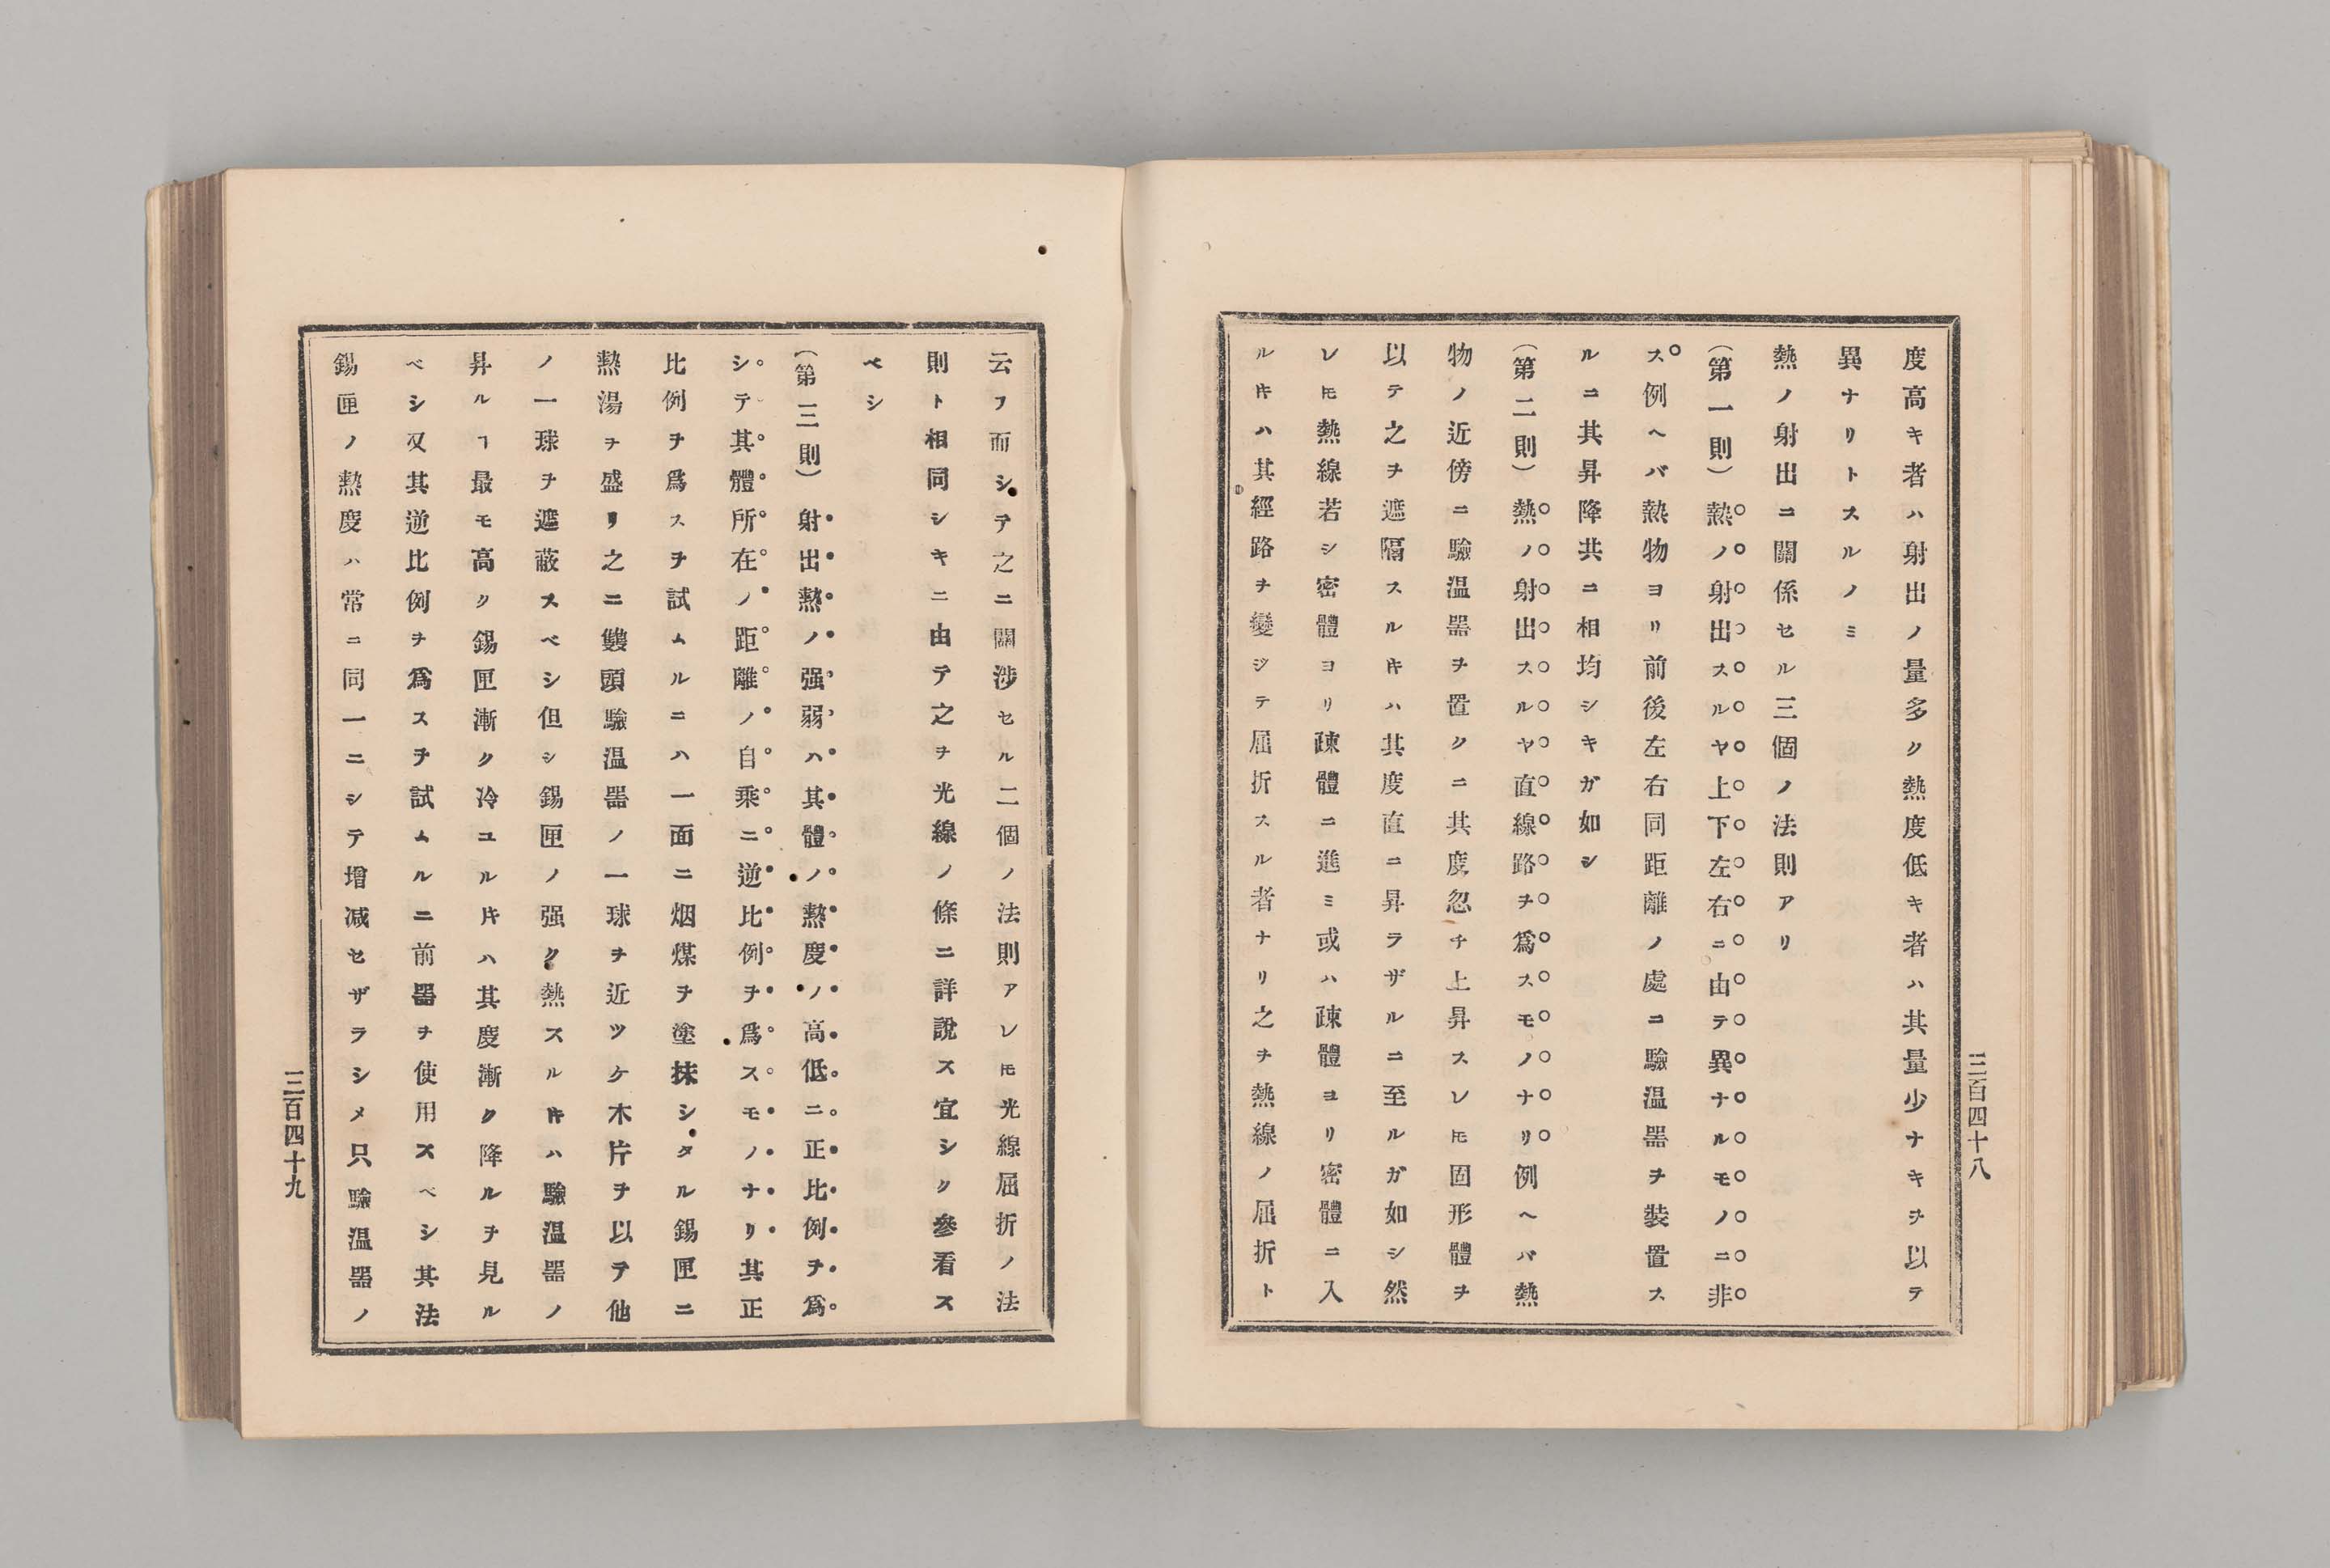 度高キ者ハ射出ノ量多ク熱度低キ者ハ其量少ナキヲ以テ
異ナリトスルノミ
熱ノ射出ニ關係セル三個ノ法則アリ
(第一則)熱ノ射出スルヤ上下左右ニ由テ異ナルモノニ非
ス例ヘバ熱物ヨリ前後左右同距離ノ處ニ驗温器ヲ裝置ス
ルニ其昇降共ニ相均シキガ如シ
(第二則)熱ノ射出スルヤ直線路ヲ爲スモノナリ例ヘバ熱
物ノ近傍ニ驗温器ヲ置クニ其度忽チ上昇スレ𪜈固形體ヲ
以テ之ヲ遮隔スルキハ其度直ニ昇ラザルニ至ルガ如シ然
レ𪜈熱線若シ密體ヨリ疎體ニ進ミ或ハ疎體ヨリ密體ニ入
ルキハ其經路ヲ變ジテ屈折スル者ナリ之ヲ熱線ノ屈折ト
三百四十八
云フ而シテ之ニ關涉セル二個ノ法則アレ𪜈光線屈折ノ法
則ト相同シキニ由テ之ヲ光線ノ條ニ詳說ス宜シク參看ス
ベシ
(第三則)射出熱ノ强弱ハ其體ノ熱度ノ高低ニ正比例ヲ爲
シテ其體所在ノ距離ノ自乘ニ逆比例ヲ爲スモノナリ其正
比例ヲ爲スヲ試ムルニハ一面ニ烟煤ヲ塗抹シタル錫匣ニ
熱湯ヲ盛リ之ニ雙頭驗温器ノ一球ヲ近ツケ木片ヲ以テ他
ノ一球ヲ遮蔽スベシ但シ錫匣ノ强ク熱スルキハ驗温器ノ
昇ルヿ最モ高ク錫匣漸ク冷ユルキハ其度漸ク降ルヲ見ル
ベシ又其逆比例ヲ爲スヲ試ムルニ前器ヲ使用スベシ其法
錫匣ノ熱度ハ常ニ同一ニシテ增減セザラシメ只驗温器ノ
三百四十九